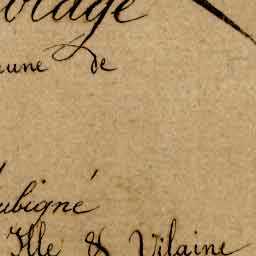 une de
ubigné
Ille & Vilaine